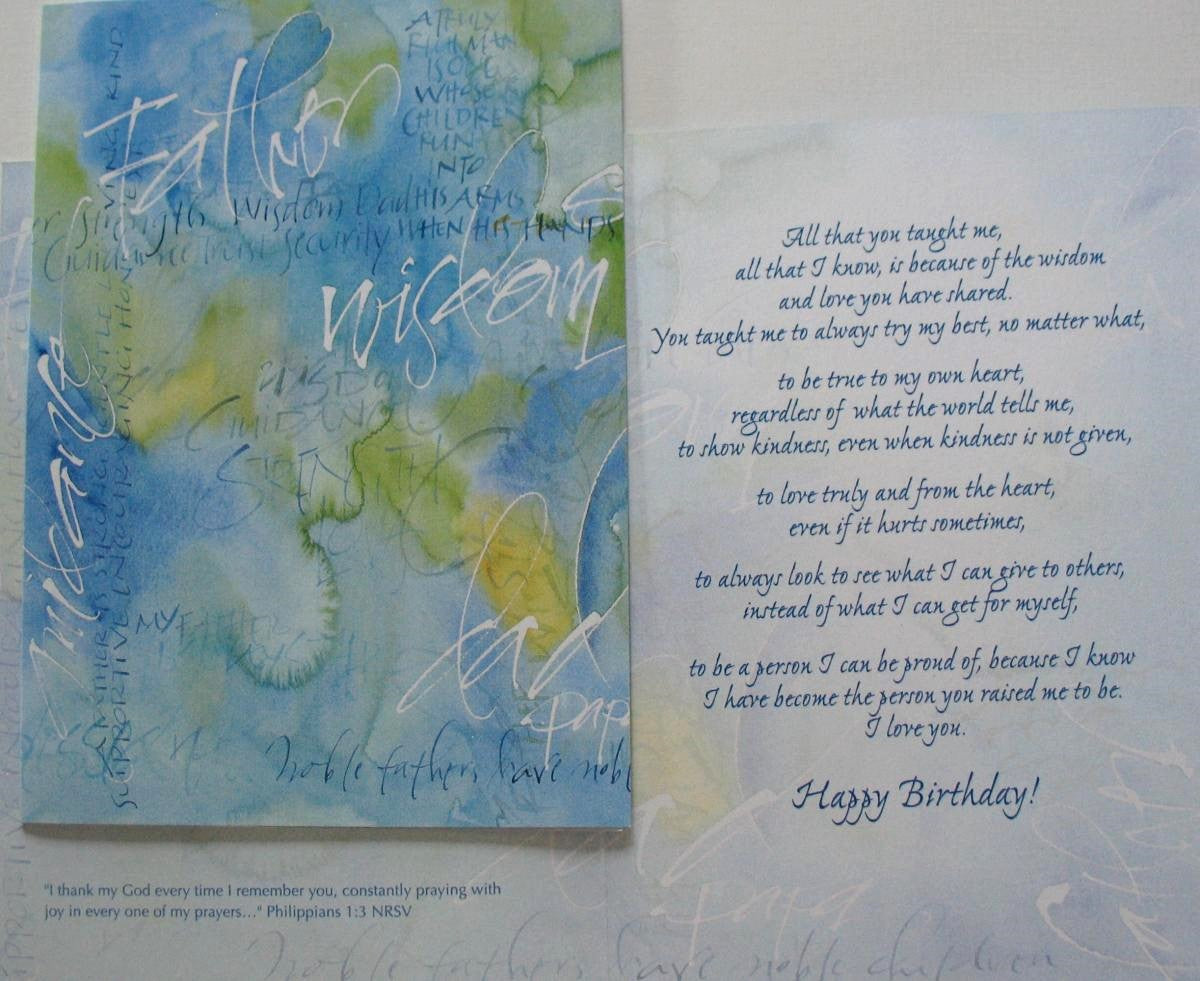 Father
A TRULY
RICH MAN
IS ONE
WHOSE
CHILDREN
RUN
INTO
HIS ARMS
WHEN HIS HANDS
Strength Wisdom Dad
Guidance Trust Security
wisdom
guidance
WISDO
GUIDANCE
STRENGTH
MY FATHER
dad
papa
Noble fathers have nobl
SUPPORTIVE ENCOURAGING HONEST
LOVING KIND
All that you taught me,
all that I know, is because of the wisdom
and love you have shared.
You taught me to always try my best, no matter what,
to be true to my own heart,
regardless of what the world tells me,
to show kindness, even when kindness is not given,
to love truly and from the heart,
even if it hurts sometimes,
to always look to see what I can give to others,
instead of what I can get for myself,
to be a person I can be proud of, because I know
I have become the person you raised me to be.
I love you.
Happy Birthday!
"I thank my God every time I remember you, constantly praying with
joy in every one of my prayers..." Philippians 1:3 NRSV
papa
noble fathers have noble children